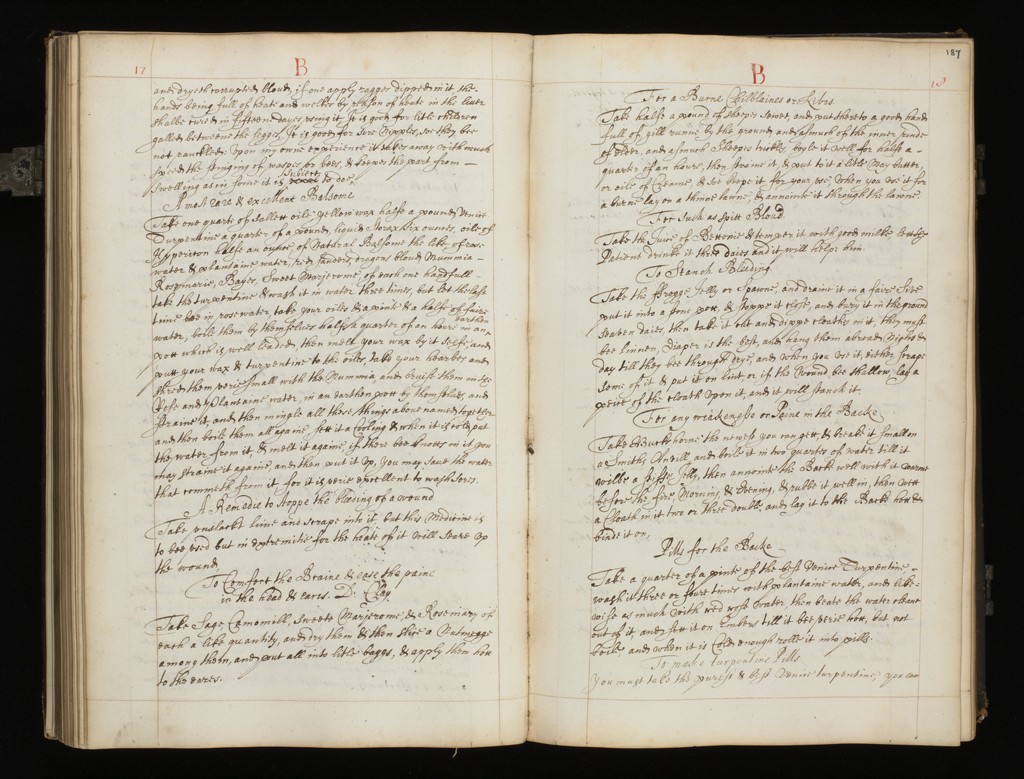 17
B
and dryeth corrupted bloud, if one apply ragges dipped in it the
hands being full of heate and welks by reason of heate in the liver
shalbe cured in fifteen dayes, using it. It is good for litle children
galled betweene the legges, It is good for sore Nipples, soe they bee
not ranckled: Upon my owne experience it takes away with much
speed the stinging of waspes or bees, & keepes the part from
Subiect
swelling as in some it is to doe.
A most rare & excellent Balsome
Take one quart of Sallett oile, yellow wax halfe a pound, Venice
Turpentine a quarter of a pound, liquid Storax six ounces, oile of
Hypericon halfe an ounce, of Natural Balsome the like, of rose
water & plantaine water, red sanders, dragons bloud, Mummia
Rosemarie, Bayes, Sweet Marjerome, of each one handfull
take the turpentine & wash it in water three times, but let the last
time bee in rose water, take your oiles & a pinte & a halfe of faire
earthen
water, boile them by themselves halfe a quarter of an houre in an
pott which is well leaded, then melt your wax by it selfe, and
putt your wax & turpentine to the oiles, take your hearbes and
shred them verie small with the Mummia, and bruise them in the
Rose and Plantaine water, in an earthen pott by themselves, and
straine it, and then mingle all these things above named together
and then boile them all againe, sett it a Cooling & when it is cold, put
the water from it, & melt it againe, if there bee knotts in it you
may straine it againe, and then put it up, you may save the water
that commeth from it, for it is verie excellent to wash sores.
A Remedie to stoppe the bleeding of a wound
Take unslackt lime and scrape into it, but this Medicine is
to bee used but in extremitie for the heate of it will seare up
the wound.
To Comfort the Braine & ease the paine
in the head & eares. D: Clay
Take Sage, Camomill, Sweete Marjerome, & Rosemary of
each a like quantity, and dry them & then slice a Nutmegge
among them, and put all into litle bagges, & apply them hott
to the eares.
187
B
18
For a Burne Chilblaines or Kibes
Take halfe a pound of sheepes suet, and put thereto a good hand
full of gill runne by the ground, and asmuch of the inner rinde
of elder, and asmuch Sheepes trickles, boile it well for halfe a
quarter of an houre, then straine it, & put to it a litle May butter,
or oile of Creame, & soe keepe it for your use, when you use it for
a burne lay on a thinne lawne, & annoint it through the lawne.
For such as spitt Bloud
Take the Juce of Bettonie & temper it with good milke, lett the
Patient drinke it three daies and it will helpe him.
To Stanch Bleeding.
Take the ffrogge Jelly or Spawne, and draine it in a faire Sive
put it into a stone pott, & stoppe it close, and bury it in the ground
seaven daies, then take it out and dippe cloaths in it, they must
bee linnen, Diaper is the best, and hang them abroad night &
day till they bee through drye, and when you use it, either scrape
some of it & put it on lint, or if the wound bee shallow, lay a
peice of the cloath upon it, and it will stanch it.
For any weaknesse or Peine in the Backe
Take Buckshorne the newest you can gett, & breake it small on
a Smiths Anvill, and boile it in two quartes of water till it
wilbe a stiffe Jelly, then annointe the Back well with it warme
before the fire, Morning & Evening, & rubb it well in, then wett
a Cloath in it two or three double, and lay it to the Back hott &
binde it on.
Pills for the Backe
Take a quarter of a pinte of the best Venice Turpentine
wash it three or foure times with plantaine water, and like-
wise as much with red rose water, then beate the water cleane
out of it, and sett it on Embers till it bee verie hott, but not
boile and when it is Cold enough rolle it into pills.
To make turpentine Pills
You must take the purest & best Venice turpentine, you can